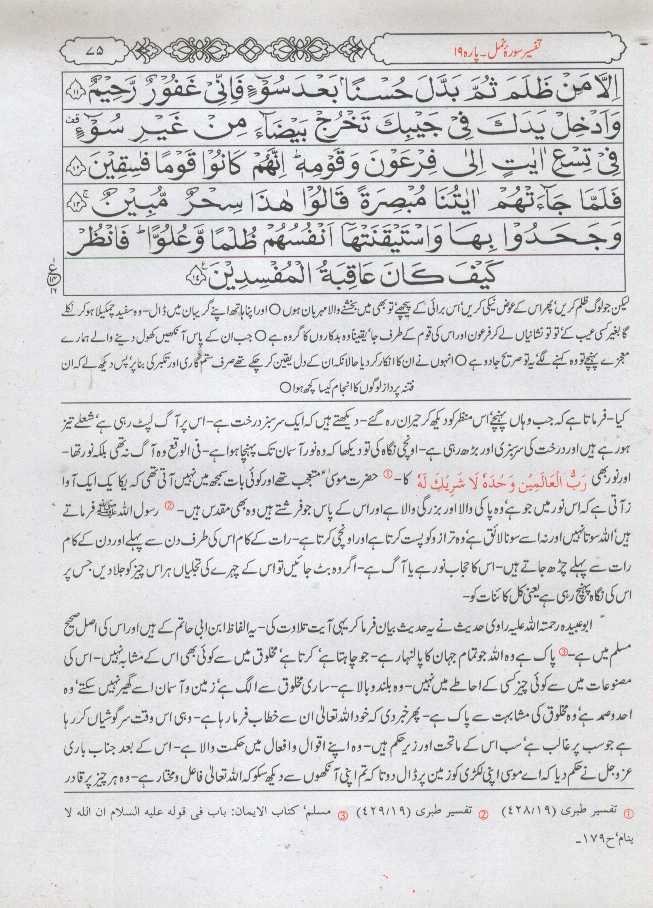 تفسیر سورۂ نمل۔ پارہ ۱۹
۷۵
اِلَّا مَنْ ظَلَمَ ثُمَّ بَدَّلَ حُسْنًۢا بَعْدَ سُوْٓءٍ فَاِنِّیْ غَفُوْرٌ رَّحِیْمٌ ﴿۱۱﴾
وَاَدْخِلْ یَدَكَ فِیْ جَیْبِكَ تَخْرُجْ بَیْضَآءَ مِنْ غَیْرِ سُوْٓءٍ قف
فِیْ تِسْعِ اٰیٰتٍ اِلٰی فِرْعَوْنَ وَقَوْمِهٖ ؕ اِنَّهُمْ كَانُوْا قَوْمًا فٰسِقِیْنَ ﴿۱۲﴾
فَلَمَّا جَآءَتْهُمْ اٰیٰتُنَا مُبْصِرَةً قَالُوْا هٰذَا سِحْرٌ مُّبِیْنٌ ﴿۱۳﴾
وَجَحَدُوْا بِهَا وَاسْتَیْقَنَتْهَاۤ اَنْفُسُهُمْ ظُلْمًا وَّعُلُوًّا ؕ فَانْظُرْ
كَیْفَ كَانَ عَاقِبَةُ الْمُفْسِدِیْنَ ﴿۱۴﴾
لیکن جو لوگ ظلم کریں' پھر اس کے عوض نیکی کریں' اس برائی کے پیچھے' تو بھی میں بخشنے والا مہربان ہوں ○ اور اپنا ہاتھ اپنے گریبان میں ڈال- وہ سفید چمکیلا ہو کر نکلے
گا بغیر کسی عیب کے' تو تو نشانیاں لے کر فرعون اور اس کی قوم کے طرف جا' یقیناً وہ بدکاروں کا گروہ ہے ○ جب ان کے پاس آنکھیں کھول دینے والے ہمارے
معجزے پہنچے تو وہ کہنے لگے' یہ تو صریح جادو ہے ○ انہوں نے ان کا انکار کر دیا حالانکہ ان کے دل یقین کر چکے تھے صرف ستم گاری اور تکبر کی بنا پر' پس دیکھ لے کہ ان
فتنہ پرداز لوگوں کا انجام کیسا کچھ ہوا ○
کیا- فرماتا ہے کہ جب وہاں پہنچے' اس منظر کو دیکھ کر حیران رہ گئے- دیکھتے ہیں کہ ایک سرسبز درخت ہے- اس پر آگ لپٹ رہی ہے' شعلے تیز
ہو رہے ہیں اور درخت کی سرسبزی اور بڑھ رہی ہے- اونچی نگاہ کی تو دیکھا کہ وہ نور آسمان تک پہنچا ہوا ہے- فی الواقع وہ آگ نہ تھی بلکہ نور تھا-
اور نور بھی رَبُّ الْعَالَمِیْنَ وَحْدَهٗ لَا شَرِیْكَ لَهٗ کا- ① حضرت موسیٰ متعجب تھے اور کوئی بات سمجھ میں نہیں آتی تھی کہ یکایک ایک آوا
ز آتی ہے کہ اس نور میں جو ہے' وہ پاکی والا اور بزرگی والا ہے اور اس کے پاس جو فرشتے ہیں وہ بھی مقدس ہیں- ② رسول اللہ ﷺ فرماتے
ہیں' اللہ سوتا نہیں اور نہ اسے سونا لائق ہے' وہ ترازو کو پست کرتا ہے اور اونچی کرتا ہے- رات کے کام اس کی طرف دن سے پہلے اور دن کے کام
رات سے پہلے چڑھ جاتے ہیں- اس کا حجاب نور ہے یا آگ ہے- اگر وہ ہٹ جائیں تو اس کے چہرے کی تجلیاں ہر اس چیز کو جلا دیں جس پر
اس کی نگاہ پہنچ رہی ہے یعنی کل کائنات کو-
ابو عبیدہ رحمتہ اللہ علیہ راوی حدیث نے یہ حدیث بیان فرما کر یہی آیت تلاوت کی- یہ الفاظ ابن ابی حاتم کے ہیں اور اس کی اصل صحیح
مسلم میں ہے- ③ پاک ہے وہ اللہ جو تمام جہان کا پالنہار ہے- جو چاہتا ہے' کرتا ہے' مخلوق میں سے کوئی بھی اس کے مشابہ نہیں- اس کی
مصنوعات میں سے کوئی چیز کسی کے احاطے میں نہیں- وہ بلند و بالا ہے- ساری مخلوق سے الگ ہے' زمین و آسمان اسے گھیر نہیں سکتے' وہ
احد و صمد ہے' وہ مخلوق کی مشابہت سے پاک ہے- پھر خبر دی کہ خود اللہ تعالیٰ ان سے خطاب فرما رہا ہے- وہی اس وقت سرگوشیاں کر رہا
ہے جو سب پر غالب ہے' سب اس کے ماتحت اور زیر حکم ہیں- وہ اپنے اقوال و افعال میں حکمت والا ہے- اس کے بعد جناب باری
عزوجل نے حکم دیا کہ اے موسی اپنی لکڑی کو زمین پر ڈال دو تا کہ تم اپنی آنکھوں سے دیکھ سکو کہ اللہ تعالیٰ فاعل و مختار ہے- وہ ہر چیز پر قادر
① تفسیر طبری (۴۲۸/۱۹) ② تفسیر طبری (۴۲۹/۱۹) ③ مسلم' کتاب الایمان: باب فی قوله علیه السلام ان الله لا
ینام' ح۱۷۹-